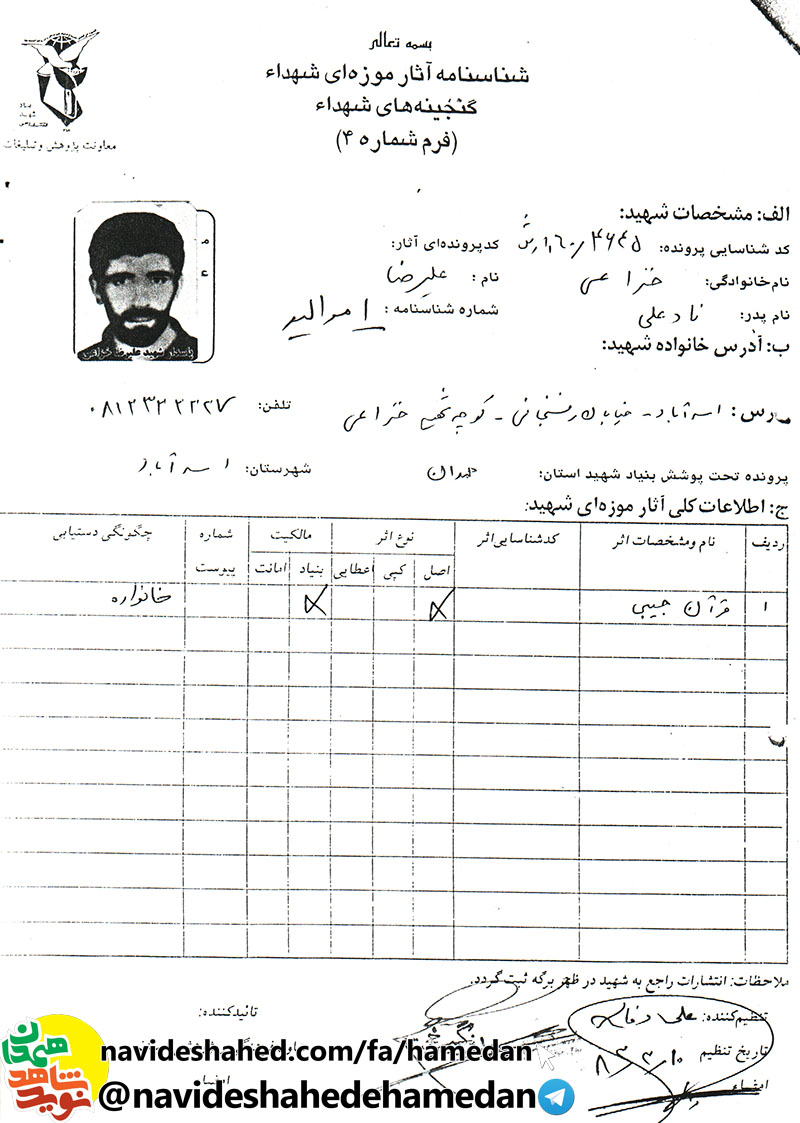 بسمه تعالی
شناسنامه آثار موزه‌ای شهداء
گنجینه‌های شهداء
(فرم شماره ۴)
بنیاد شهید
معاونت پژوهش و تبلیغات
الف: مشخصات شهید:
کد شناسایی پرونده: کدپرونده‌ای آثار:
نام خانوادگی: خزاعی نام: علیرضا
نام پدر: نادعلی شماره شناسنامه:
پاسدار شهید علیرضا خزاعی
ب: آدرس خانواده شهید:
درس: اسدآباد - خیابان رفسنجانی - کوچه شهید خزاعی تلفن: ۰۸۱۲۳۲۲۲۲۷
پرونده تحت پوشش بنیاد شهید استان: همدان شهرستان: اسدآباد
ج: اطلاعات کلی آثار موزه‌ای شهید:
ردیف نام و مشخصات اثر کدشناسایی اثر نوع اثر مالکیت شماره پیوست چگونگی دستیابی
اصل کپی اعطایی بنیاد امانت
۱ قرآن جیبی خانواده
ملاحظات: انتشارات راجع به شهید در ظهر برگه ثبت گردد.
تنظیم‌کننده: علی تائیدکننده:
تاریخ تنظیم ۸۳/۲/۱۰
امضاء امضاء
نوید شاهد همدان
navideshahed.com/fa/hamedan
@navideshahedehamedan